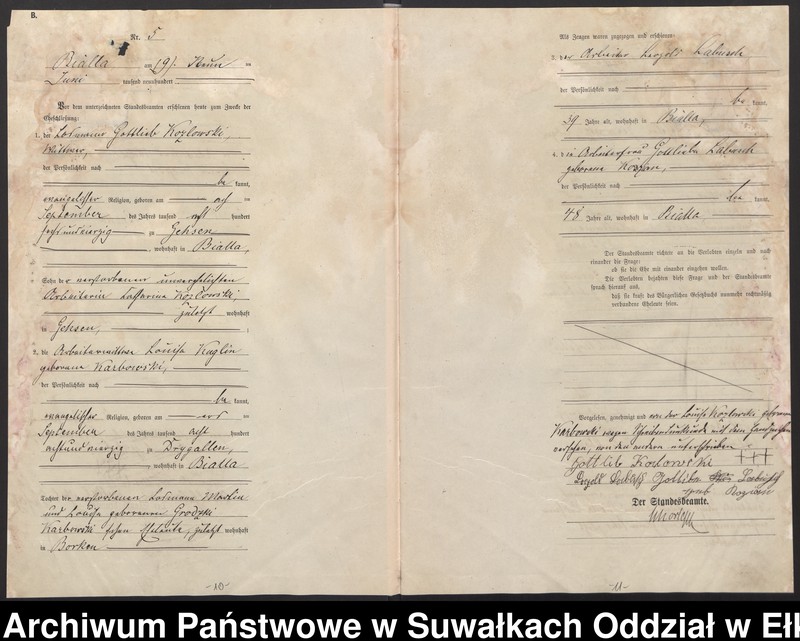 B.
Nr. 5
Bialla am 19. Neun
Juni tausend neunhundert
Vor dem unterzeichneten Standesbeamten erschienen heute zum Zwecke der
Eheschließung:
1. der Losmann Gottlieb Kozlowski,
Wittwer,
der Persönlichkeit nach
be kannt,
evangelischer Religion, geboren am
September des Jahres tausend acht hundert
sechsundvierzig zu Gehsen
, wohnhaft in Bialla,
Sohn der verstorbenen unverehelichten
Arbeiterin Catharina Kozlowski,
zuletzt wohnhaft
in Gehsen,
2. die Arbeiterwittwe Louise Kaglin
geborene Karbowski,
der Persönlichkeit nach
be kannt,
evangelischer Religion, geboren am
September des Jahres tausend acht hundert
achtundvierzig zu Drygallen,
, wohnhaft in Bialla
Tochter der verstorbenen Losmann Martin
und Louise geborenen Grodzki
Karbowski'schen Eheleute, zuletzt wohnhaft
in Borken
-10-
Als Zeugen waren zugezogen und erschienen:
3. der Arbeiter Leopold Labusch
der Persönlichkeit nach
be kannt,
39 Jahre alt, wohnhaft in Bialla,
4. die Arbeiterfrau Gottliebe Labusch
geborene
der Persönlichkeit nach
be kannt,
48 Jahre alt, wohnhaft in Bialla,
Der Standesbeamte richtete an die Verlobten einzeln und nach
einander die Frage:
ob sie die Ehe mit einander eingehen wollen.
Die Verlobten bejahten diese Frage und der Standesbeamte
sprach hierauf aus,
daß sie kraft des Bürgerlichen Gesetzbuchs nunmehr rechtmäßig
verbundene Eheleute seien.
Vorgelesen, genehmigt und von der Louise Kozlowski geborenen
Karbowski wegen Schreibensunkunde mit dem Handzeichen
versehen, von den anderen unterschrieben
+++
Gottlieb Kozlowski
Gottliebe
Der Standesbeamte.
-11-
Archiwum Państwowe w Suwałkach Oddział w Eł